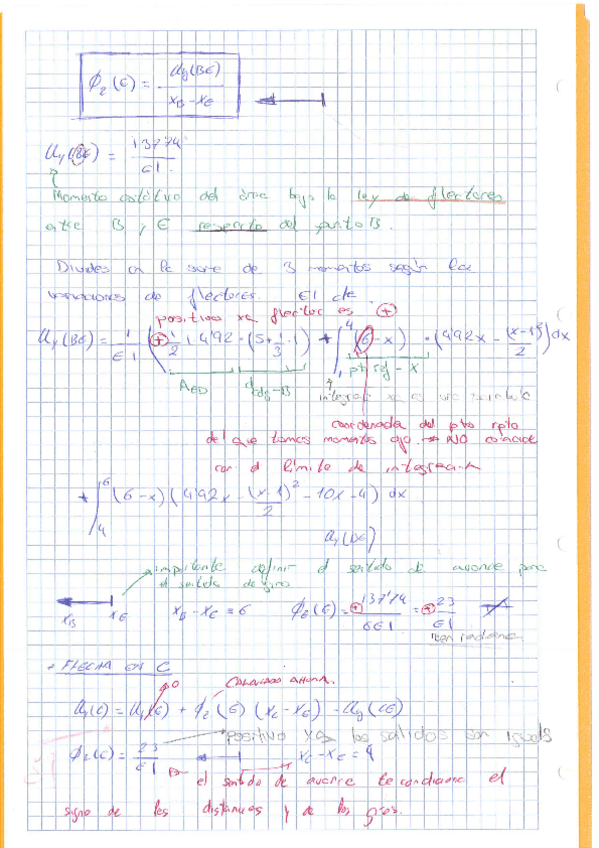 ϕz (E) = uy(BE) / xB - xE
uy(BE) = 137'74 / EI
Momento estático del área bajo la ley de flectores
entre B y E respecto del punto B.
Divides en la suma de 3 momentos según las
variaciones de flectores. EI cte.
positivo xq flector es +
uy(BE) = 1/EI ( + 1/2 · 1 · 4'92 · (5 + 1/3 · 1) + ∫₁⁴ (6 - x) · (4'92x - (x-1)²/2) dx
AED dcdg-B pto ref - x
integral xq es una parábola
coordenada del pto rpto
del que tomas momentos ojo → NO coincide
con el límite de integración
+ ∫₄⁶ (6-x) (4'92x - (x-1)²/2 - 10x - 4) dx
importante definir el sentido de avance para
el sentido de giro
xB xE xB - xE = 6 ϕz(E) = + 137'74 / 6EI = + 23 / EI
en radianes
• FLECHA EN C
CALCULADO AHORA.
uy(C) = uy(E) + ϕz (E) (xC - xE) - uy (CE)
ϕz(E) = 23 / EI positivo xq los sentidos son iguales
xC - xE = 4
el sentido de avance te condiciona el
signo de las distancias y de los giros.